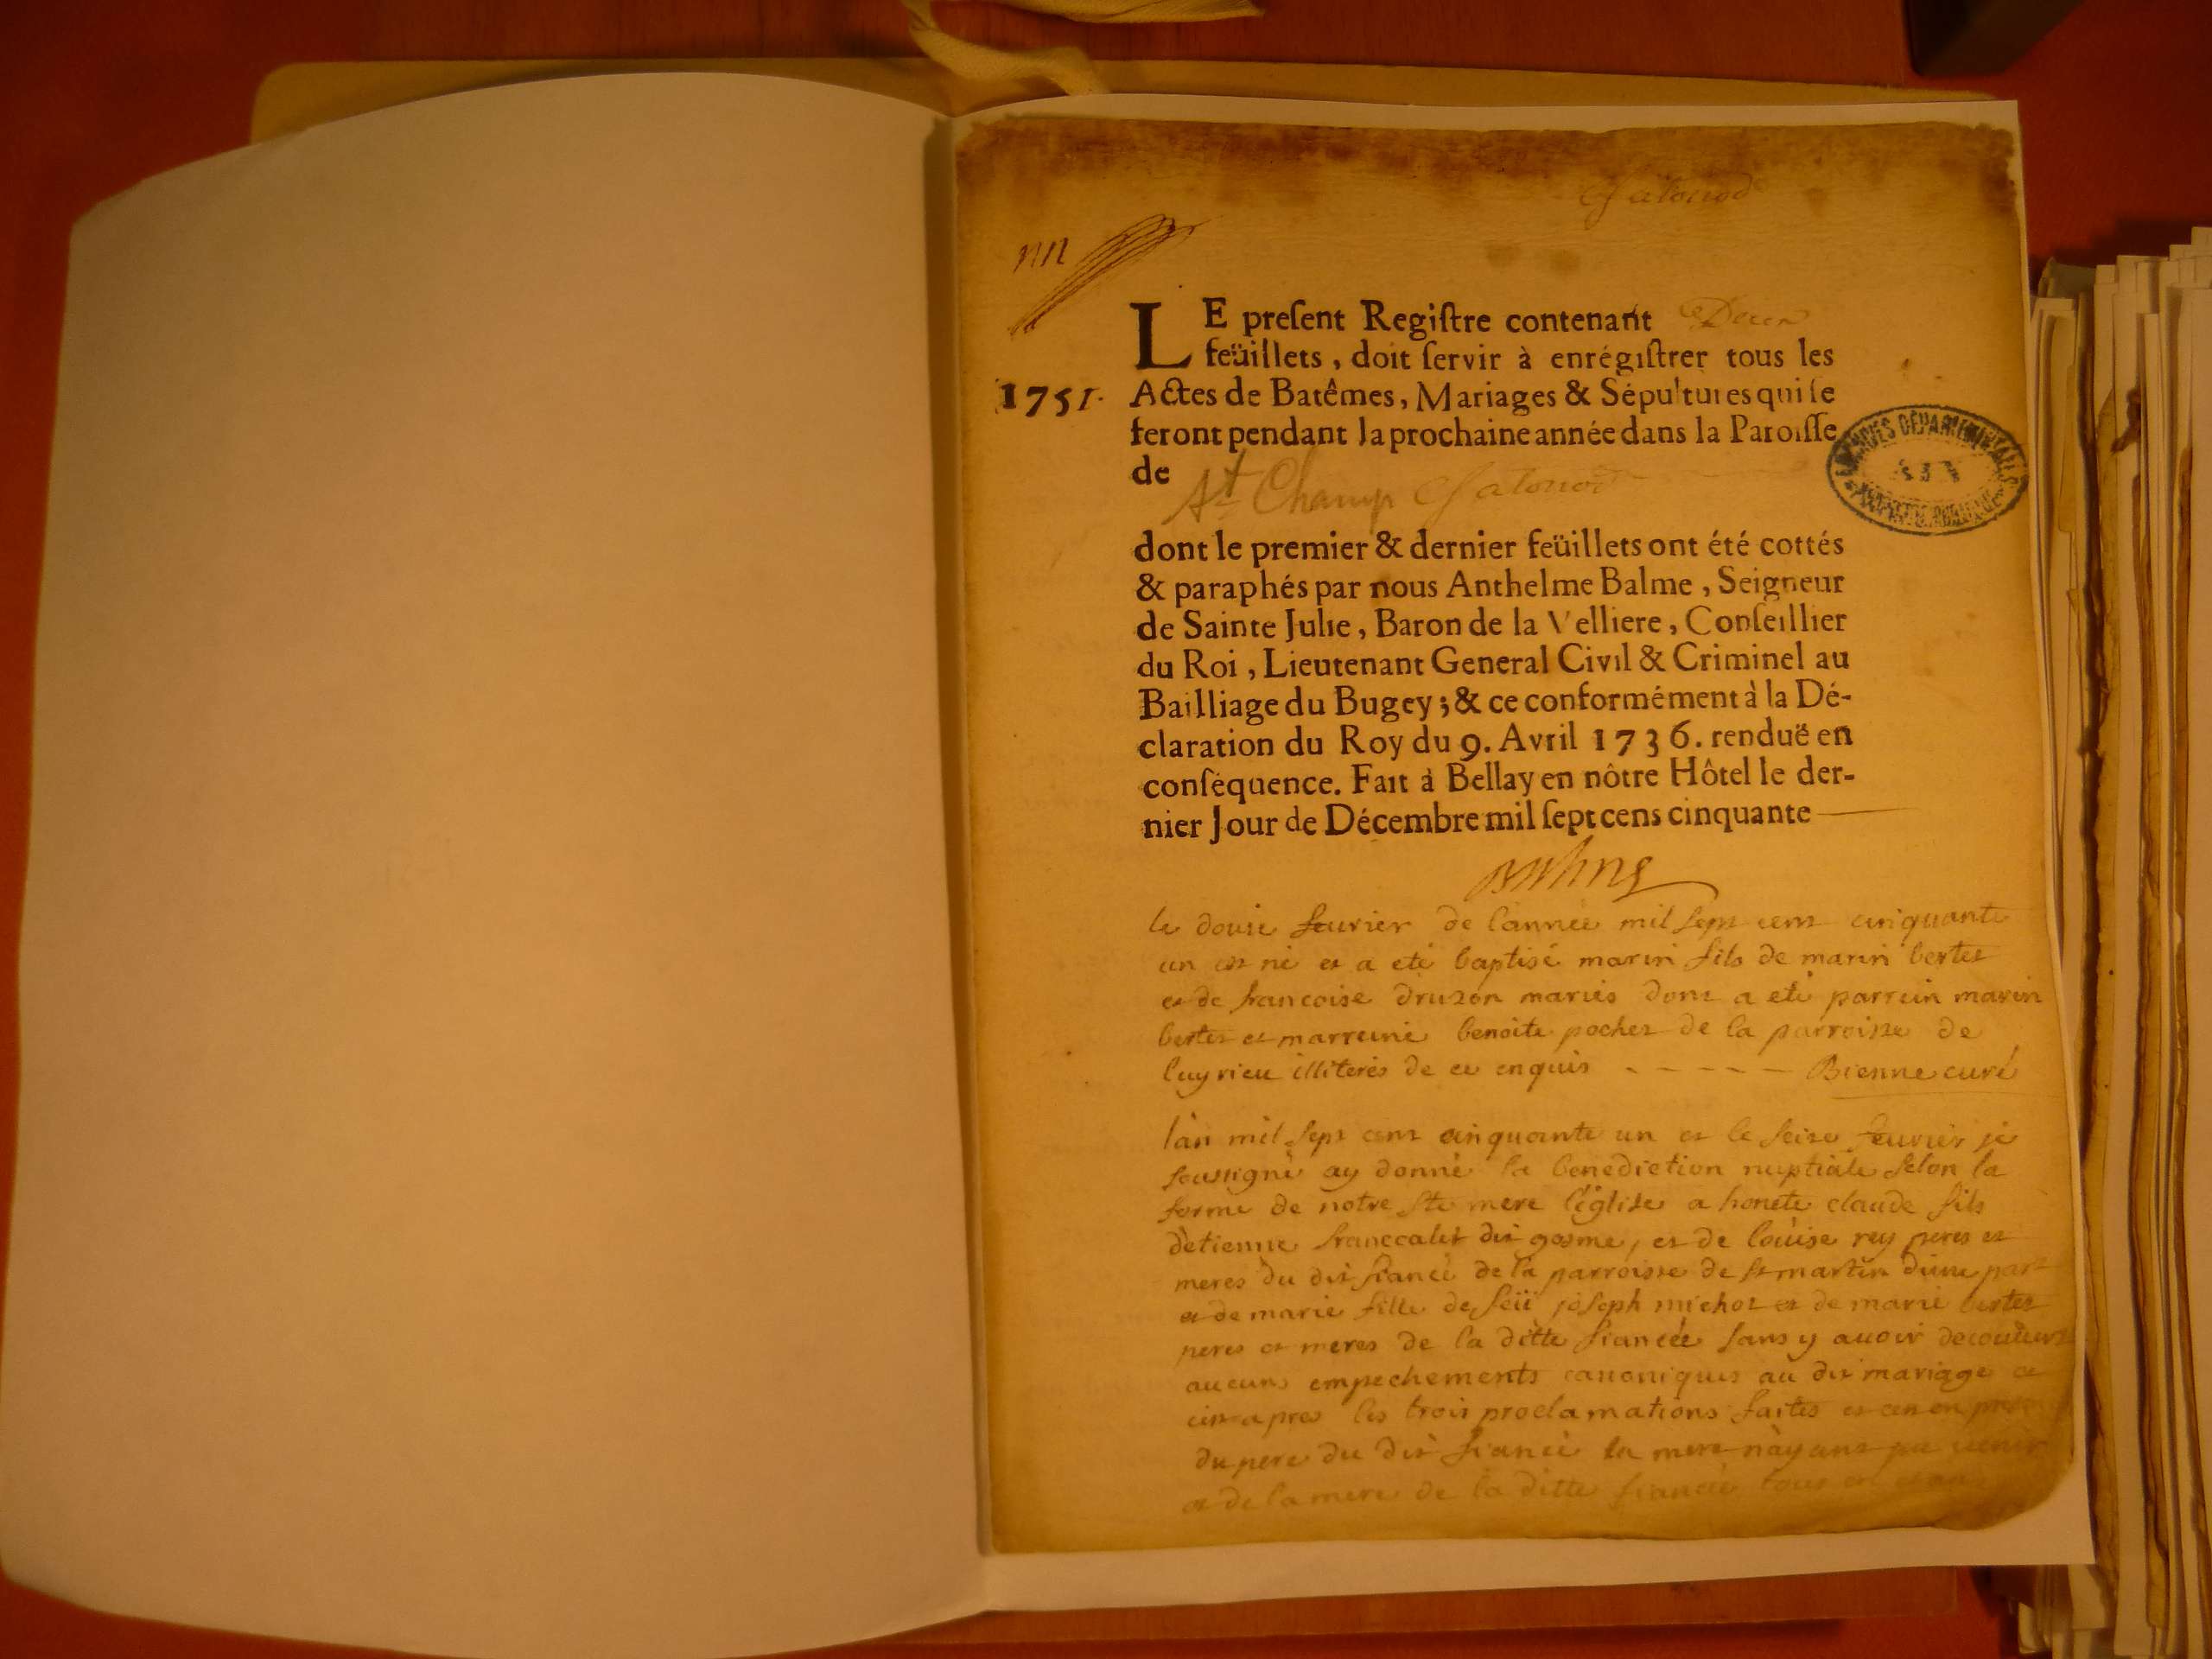 Chatonod
LE preſent Regiſtre contenant Deux
feüillets, doit ſervir à enrégiſtrer tous les
1751. Actes de Batêmes, Mariages & Sépultures qui ſe
feront pendant la prochaine année dans la Paroiſſe
de St Champ Chatonod
dont le premier & dernier feüillets ont été cottés
& paraphés par nous Anthelme Balme, Seigneur
de Sainte Julie, Baron de la Velliere, Conſeillier
du Roi, Lieutenant General Civil & Criminel au
Bailliage du Bugey; & ce conformément à la Dé-
claration du Roy du 9. Avril 1736. renduë en
conſéquence. Fait à Bellay en nôtre Hôtel le der-
nier Jour de Décembre mil ſept cens cinquante
ARCHIVES DÉPARTEMENTALES
le douze feuvrier de l'année mil sept cent cinquante
un est né et a eté baptisé marin fils de marin bertet
et de francoise druzon mariés dont a eté parrein marin
bertet et marreine benoite pochet de la parroisse de
luyrieu illiterés de ce enquis - - - - - Bienne curé
l'an mil sept cent cinquante un et le seize feuvrier je
soussigné ay donné la benediction nuptiale selon la
forme de notre Ste mere l'église a honete claude fils
d'etienne franccalet dit gosme, et de loüise rey peres et
meres du dit fiancé de la parroisse de st martin d'une part
et de marie fille de feü joseph michot et de marie bertet
peres et meres de la ditte fiancée sans y avoir decouvert
aucuns empechements canoniques au dit mariage et
apres les trois proclamations faites et en
du pere du dit fiancé la mere n'ayant pu venir
et de la mere de la ditte fiancée tous